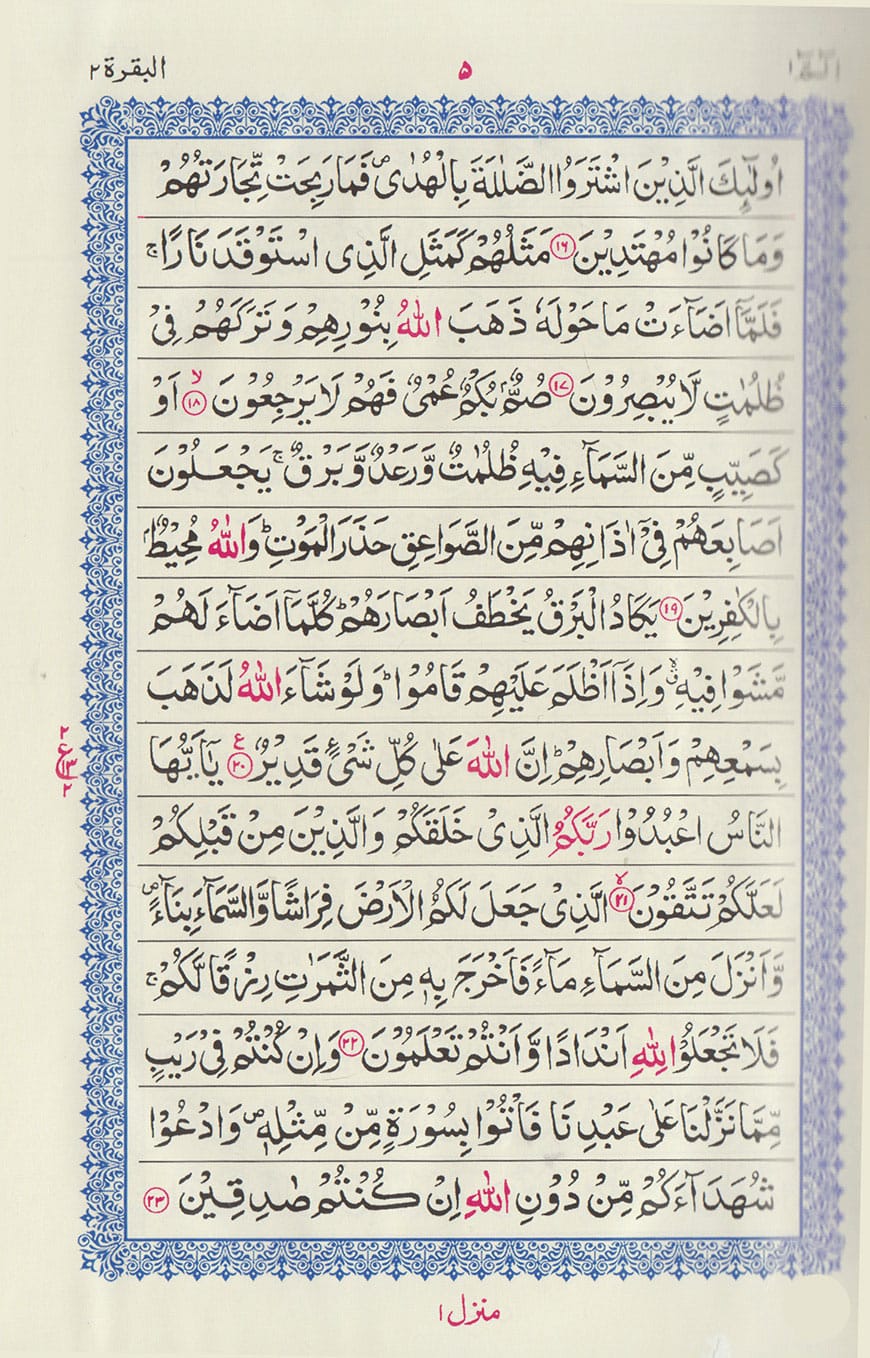 الٓمّٓ ١ ۵ البقرة ٢
اُولٰٓئِكَ الَّذِيْنَ اشْتَرَوُا الضَّلٰلَةَ بِالْهُدٰى ۪ فَمَا رَبِحَتْ تِّجَارَتُهُمْ
وَمَا كَانُوْا مُهْتَدِيْنَ ۝١٦ مَثَلُهُمْ كَمَثَلِ الَّذِى اسْتَوْقَدَ نَارًا ۚ
فَلَمَّآ اَضَآءَتْ مَا حَوْلَهٗ ذَهَبَ اللّٰهُ بِنُوْرِهِمْ وَتَرَكَهُمْ فِىْ
ظُلُمٰتٍ لَّا يُبْصِرُوْنَ ۝١٧ صُمٌّۢ بُكْمٌ عُمْىٌ فَهُمْ لَا يَرْجِعُوْنَ ۙ۝١٨ اَوْ
كَصَيِّبٍ مِّنَ السَّمَآءِ فِيْهِ ظُلُمٰتٌ وَّرَعْدٌ وَّبَرْقٌ ۚ يَجْعَلُوْنَ
اَصَابِعَهُمْ فِىْٓ اٰذَانِهِمْ مِّنَ الصَّوَاعِقِ حَذَرَ الْمَوْتِ ؕ وَاللّٰهُ مُحِيْطٌۢ
بِالْكٰفِرِيْنَ ۝١٩ يَكَادُ الْبَرْقُ يَخْطَفُ اَبْصَارَهُمْ ؕ كُلَّمَآ اَضَآءَ لَهُمْ
مَّشَوْا فِيْهِ ۙۗ وَاِذَآ اَظْلَمَ عَلَيْهِمْ قَامُوْا ؕ وَلَوْ شَآءَ اللّٰهُ لَذَهَبَ
بِسَمْعِهِمْ وَاَبْصَارِهِمْ ؕ اِنَّ اللّٰهَ عَلٰى كُلِّ شَىْءٍ قَدِيْرٌ ۝٢٠ ع يٰٓاَيُّهَا
النَّاسُ اعْبُدُوْا رَبَّكُمُ الَّذِىْ خَلَقَكُمْ وَالَّذِيْنَ مِنْ قَبْلِكُمْ
لَعَلَّكُمْ تَتَّقُوْنَ ۙ۝٢١ الَّذِىْ جَعَلَ لَكُمُ الْاَرْضَ فِرَاشًا وَّالسَّمَآءَ بِنَآءً ۪
وَّاَنْزَلَ مِنَ السَّمَآءِ مَآءً فَاَخْرَجَ بِهٖ مِنَ الثَّمَرٰتِ رِزْقًا لَّكُمْ ۚ
فَلَا تَجْعَلُوْا لِلّٰهِ اَنْدَادًا وَّاَنْتُمْ تَعْلَمُوْنَ ۝٢٢ وَاِنْ كُنْتُمْ فِىْ رَيْبٍ
مِّمَّا نَزَّلْنَا عَلٰى عَبْدِنَا فَاْتُوْا بِسُوْرَةٍ مِّنْ مِّثْلِهٖ ۪ وَادْعُوْا
شُهَدَآءَكُمْ مِّنْ دُوْنِ اللّٰهِ اِنْ كُنْتُمْ صٰدِقِيْنَ ۝٢٣
منزل ١